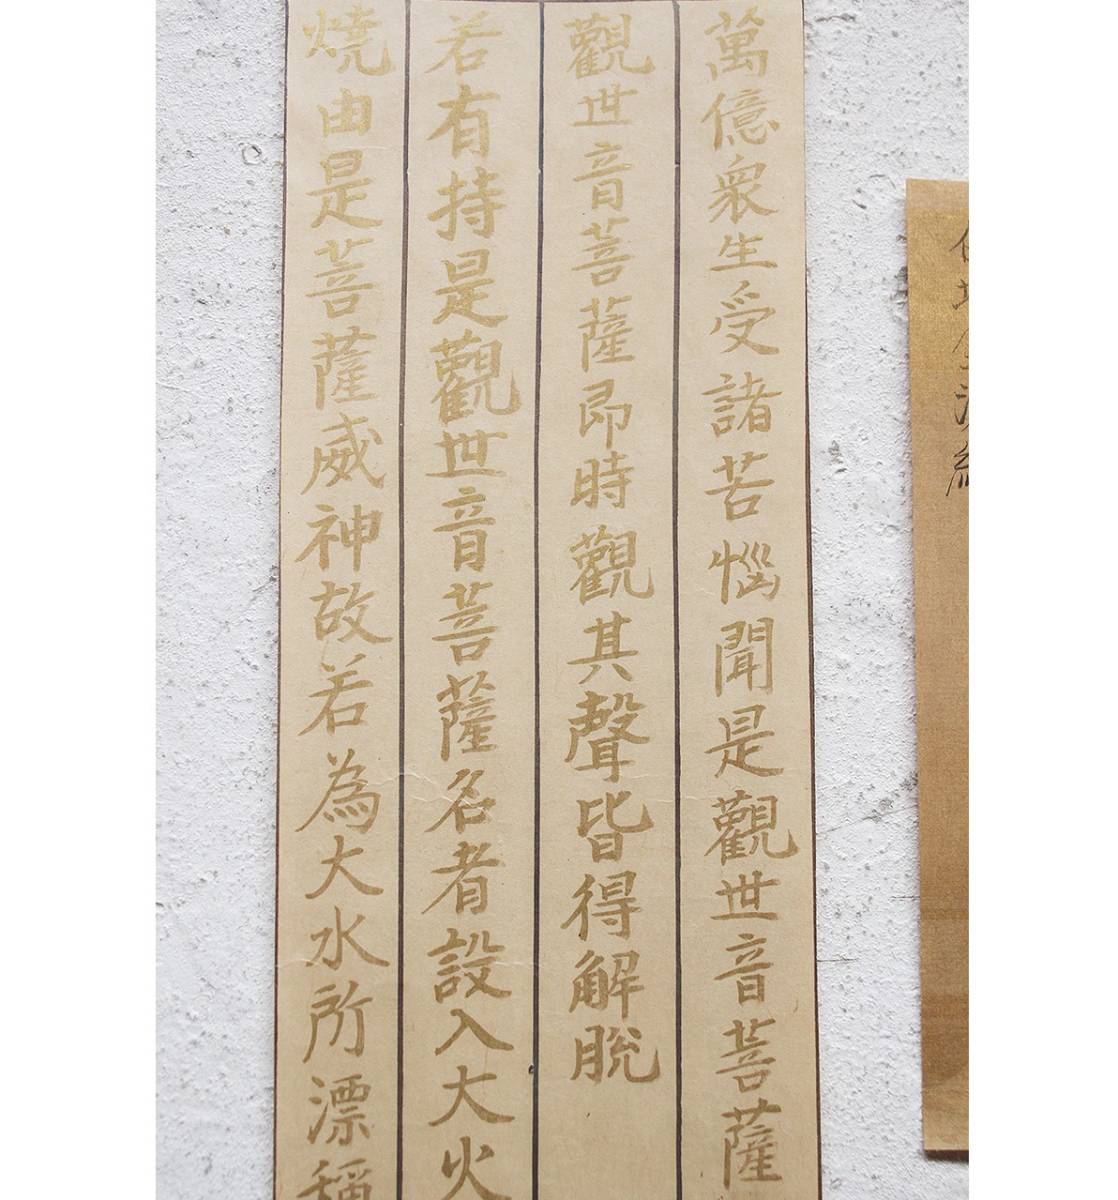 萬億衆生受諸苦惱聞是觀世音菩薩
觀世音菩薩即時觀其聲皆得解脱
若有持是觀世音菩薩名者設入大火
焼由是菩薩威神故若為大水所漂稱